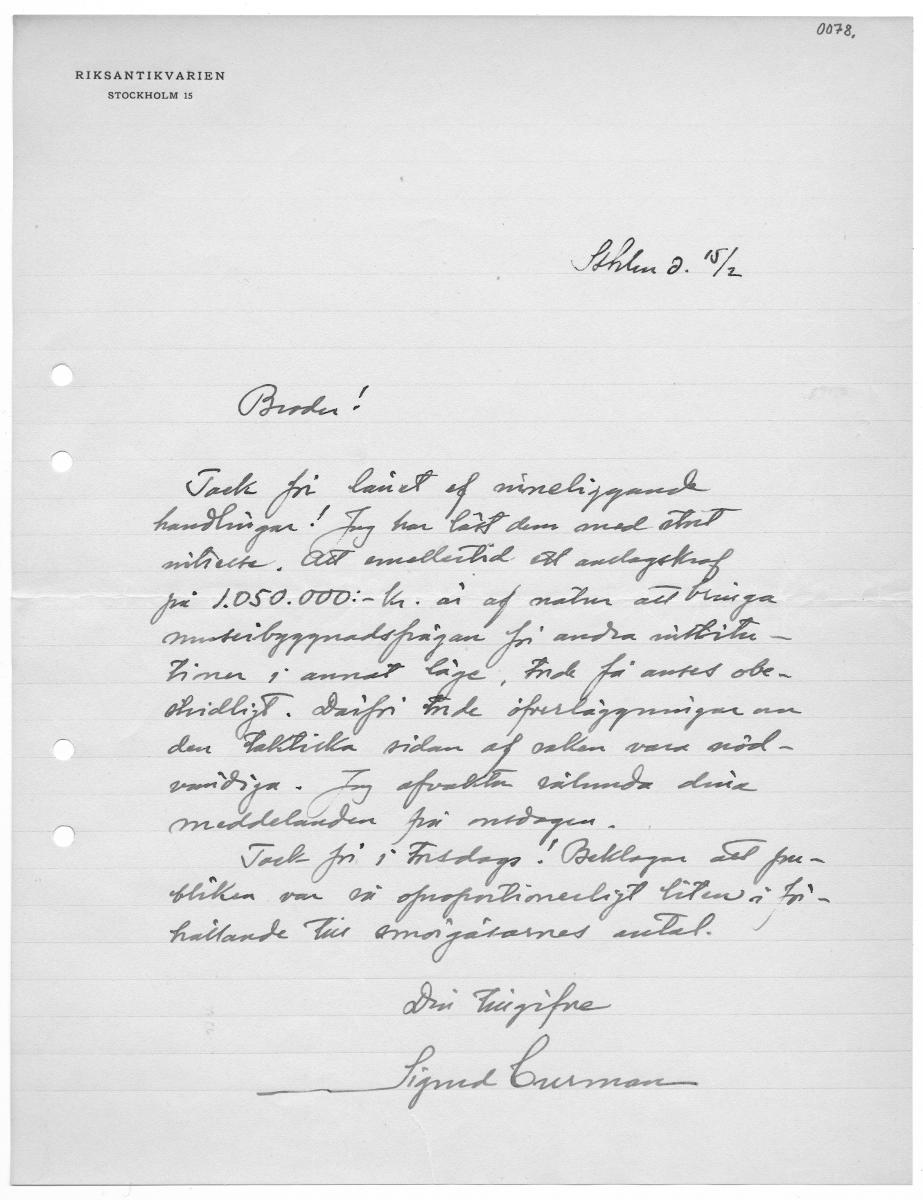 0078.
RIKSANTIKVARIEN
STOCKHOLM 15
Sthlm d. 15/2
Broder!
Tack för lånet af inneliggande
handlingar! Jag har läst dem med stort
intresse. Att emellertid ett anslagskraf
på 1.050.000:- kr. är af natur att bringa
museibyggnadsfrågan för andra institu-
tioner i annat läge, torde få anses obe-
stridligt. Därför torde öfverläggningar om
den taktiska sidan af saken vara nöd-
vändiga. Jag afvaktar sålunda dina
meddelanden på onsdagen.
Tack för i torsdags! Beklagar att pu-
bliken var så oproportionerligt liten i för-
hållande till smörgåsarnes antal.
Din tillgifne
Sigurd Curman